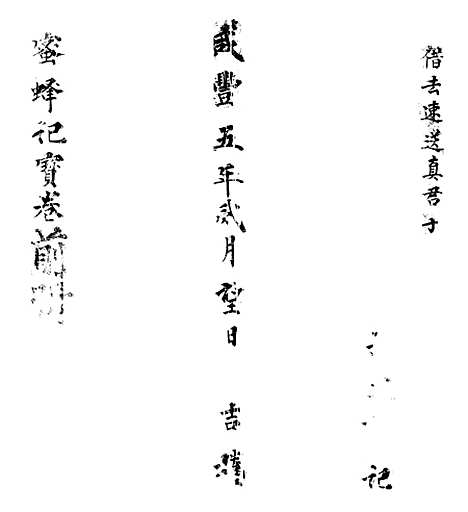 借去速送真君子
記
咸豐五年貳月望日 吉
蜜蜂记寳卷前